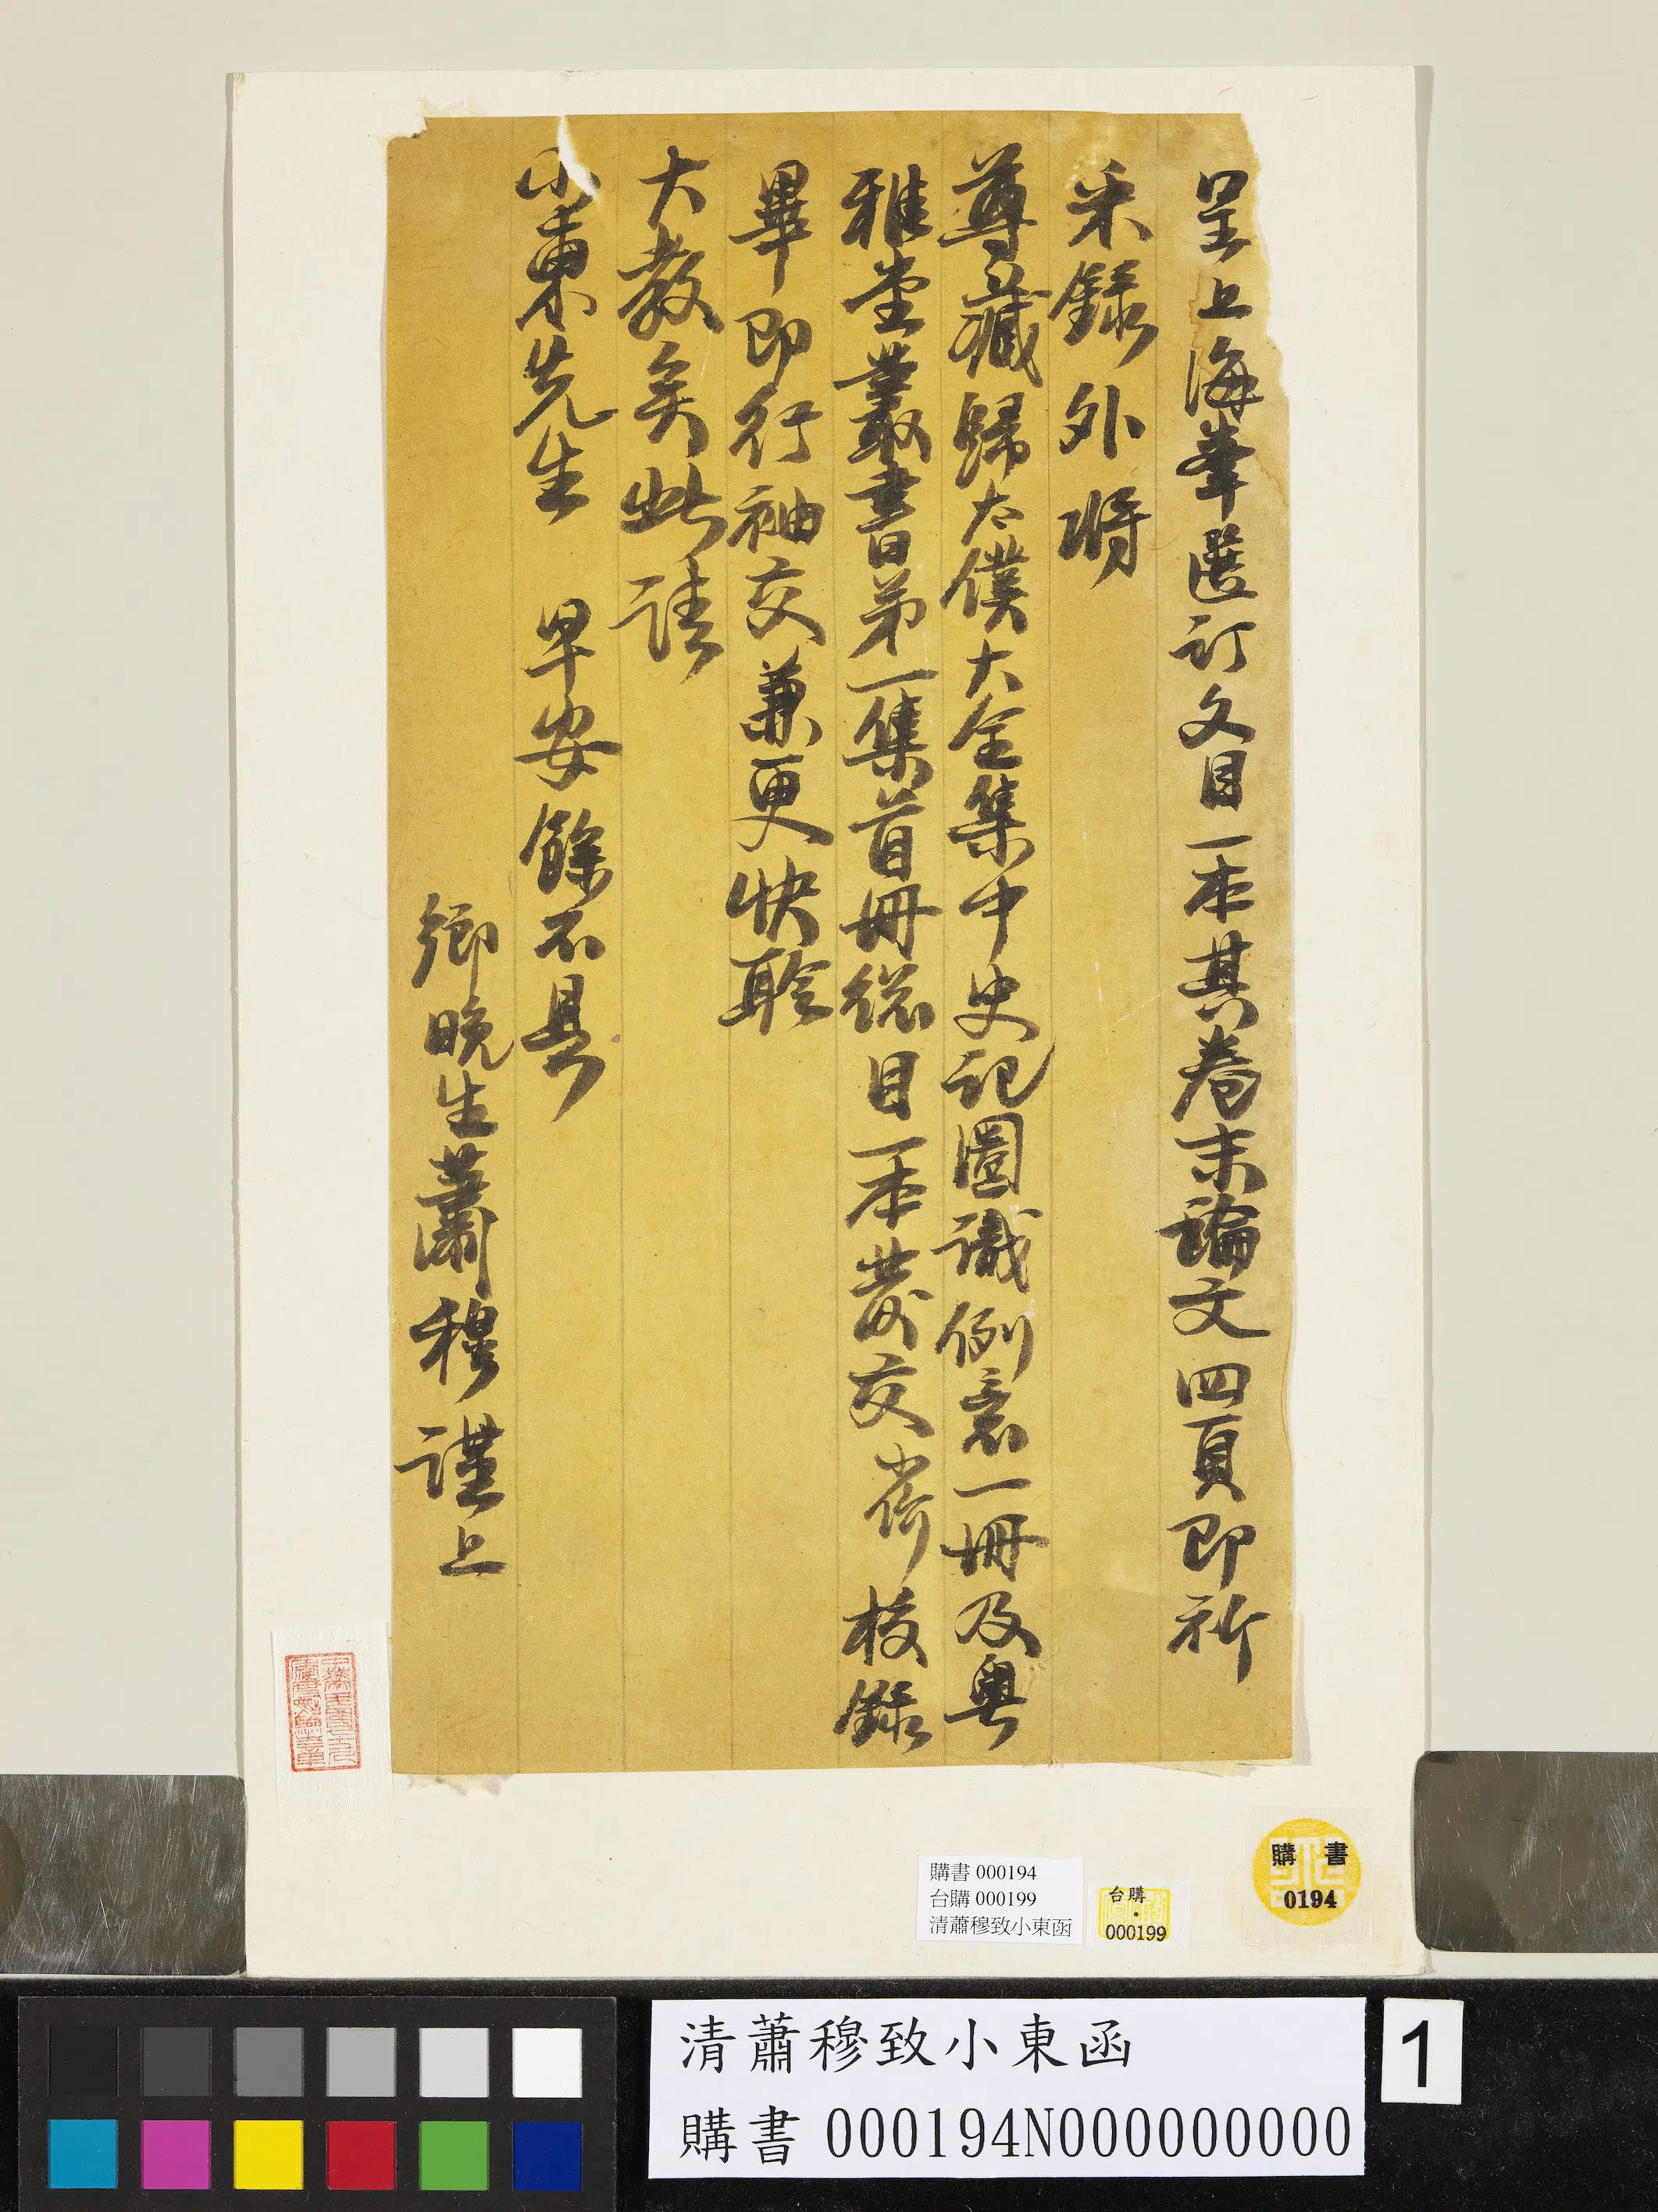 呈上海峯選訂文目一本其卷末論文四頁即祈
采錄外將
尊藏歸太僕大全集中史記圈識例意一冊及粵
雅堂叢書第一集首冊總目一本發交賞校錄
畢即行袖交兼更快聆
大教矣此請
小東先生 早安餘不具
鄉晚生蕭穆謹上
購書 000194
台購 000199
清蕭穆致小東函
台購
000199
購 書
0194
清蕭穆致小東函
購書 000194N000000000
1